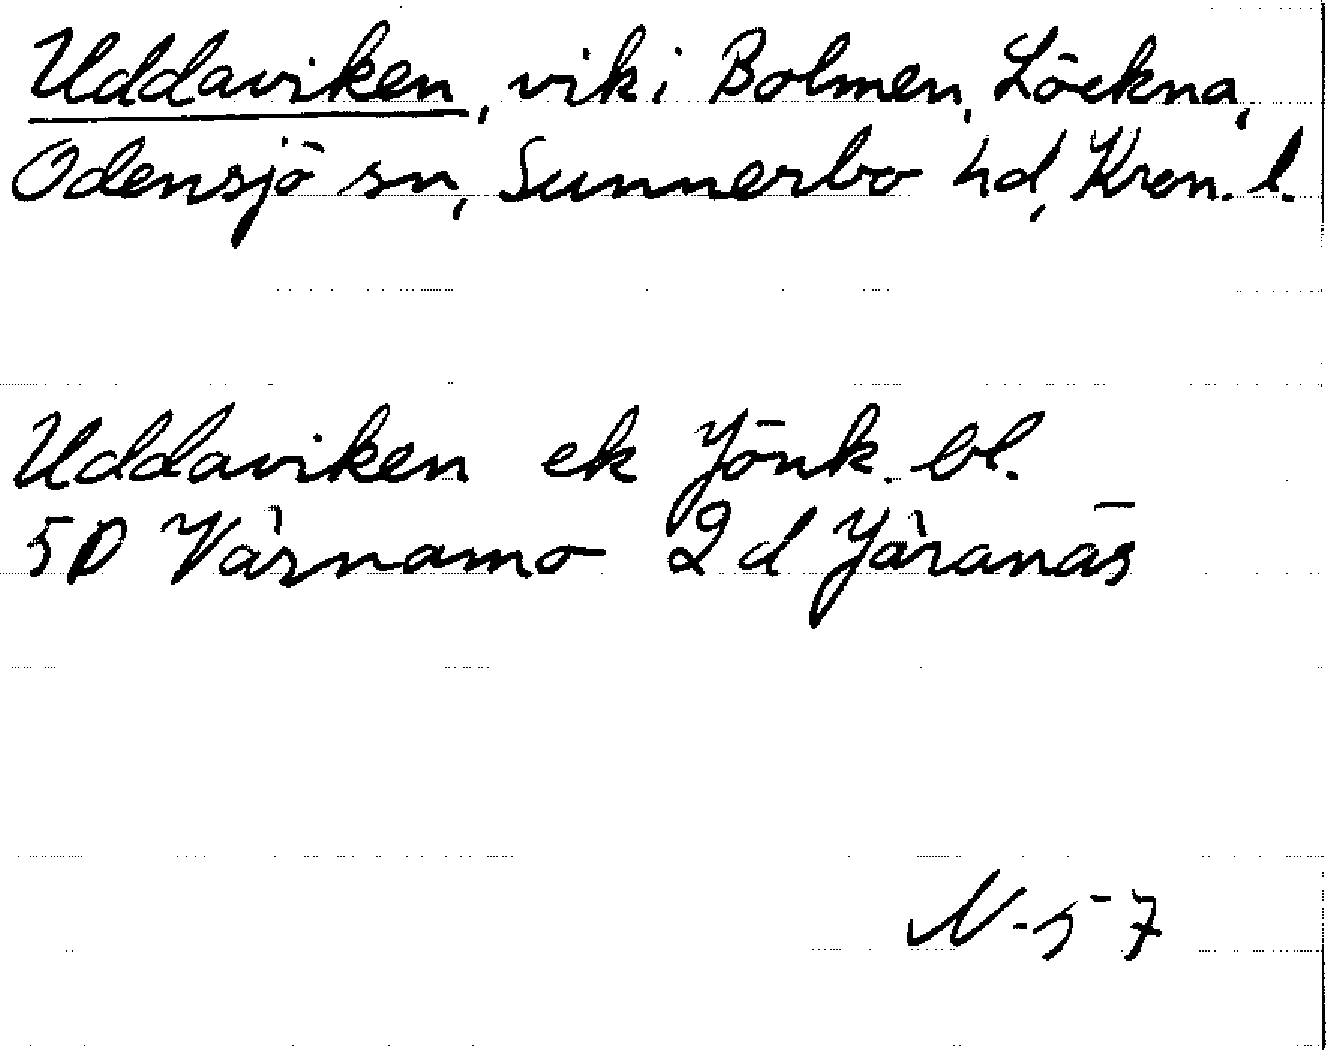 Uddaviken, vik i Bolmen, Löckna,
Odensjö sn, Sunnerbo hd, Kron. l.
Uddaviken ek Jönk. bl.
5D Värnamo 2d Järanäs
N-57